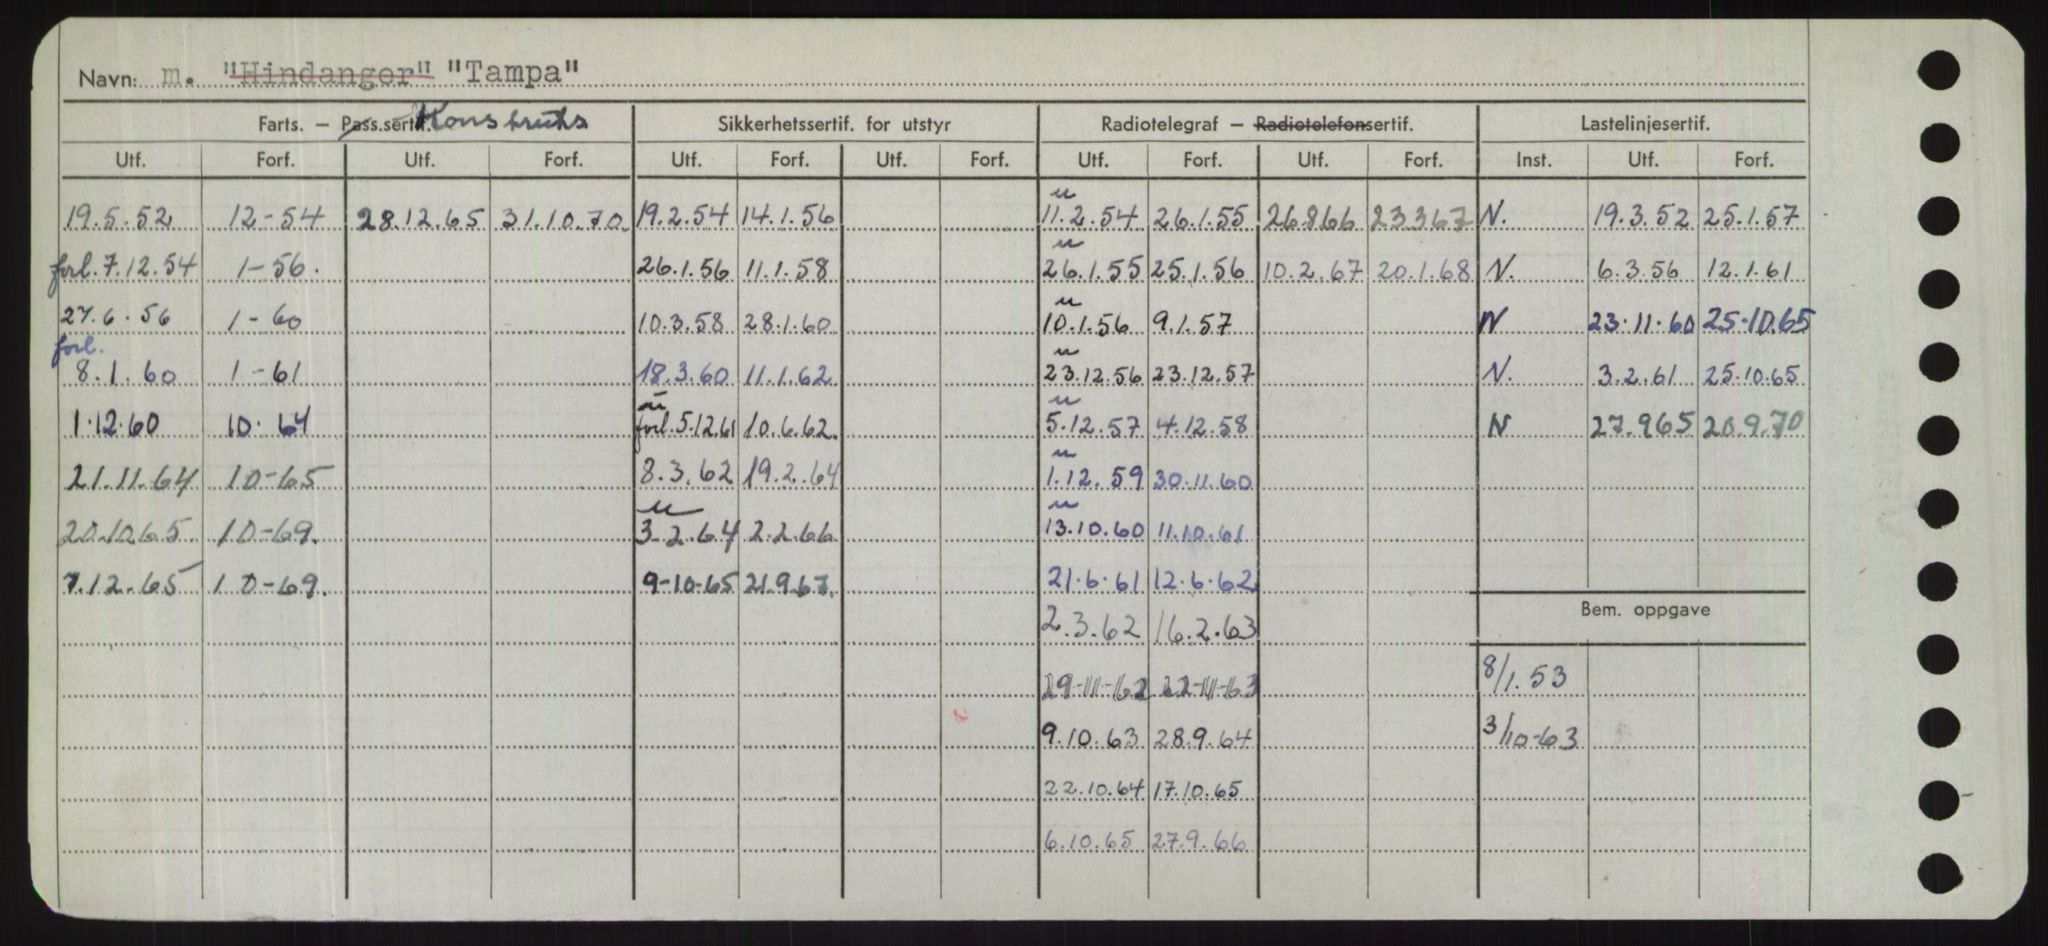 Navn: m. "Hindanger" "Tampa"
Farts. – Pass.sertif. Konstruks Sikkerhetssertif. for utstyr Radiotelegraf – Radiotelefonsertif. Lastelinjesertif.
Utf. Forf. Utf. Forf. Utf. Forf. Utf. Forf. Utf. Forf. Utf. Forf. Inst. Utf. Forf.
u
19.5.52 12-54 28.12.65 31.10.70 19.2.54 14.1.56 11.2.54 26.1.55 26.866 23367 N. 19.3.52 25.1.57
u
forl. 7.12.54 1-56. 26.1.56 11.1.58 26.1.55 25.1.56 10.2.67 20.1.68 N. 6.3.56 12.1.61
u
27.6.56 1-60 10.3.58 28.1.60 10.1.56 9.1.57 N 23.11.60 25.10.65
forl. u
8.1.60 1-61 18.3.60 11.1.62 23.12.56 23.12.57 N. 3.2.61 25.10.65
u u
1.12.60 10.64 forl. 5.12.61 10.6.62. 5.12.57 4.12.58 N 27.965 20.9.70
u
21.11.64 10-65 8.3.62 19.2.64 1.12.59 30.11.60
u u
20.10.65 10-69. 3.2.64 2.2.66 13.10.60 11.10.61
7.12.65 10-69. 9-10-65 21.9.67. 21.6.61 12.6.62
Bem. oppgave
2.3.62 16.2.63
29-11-62 22-11-63 8/1.53
9.10.63 28.9.64 3/10-63
22.10.64 17.10.65
6.10.65 27.9.66